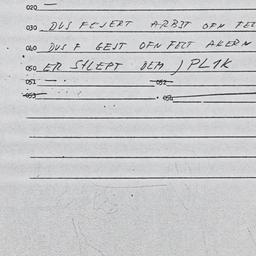 020 —
030 DUS FEJERT ARBJT OFN FEL
040 DUS F GEST OFN FELT AKERN
050 ER SHLEPT DEM ) PL1K
051 — 052
053 054